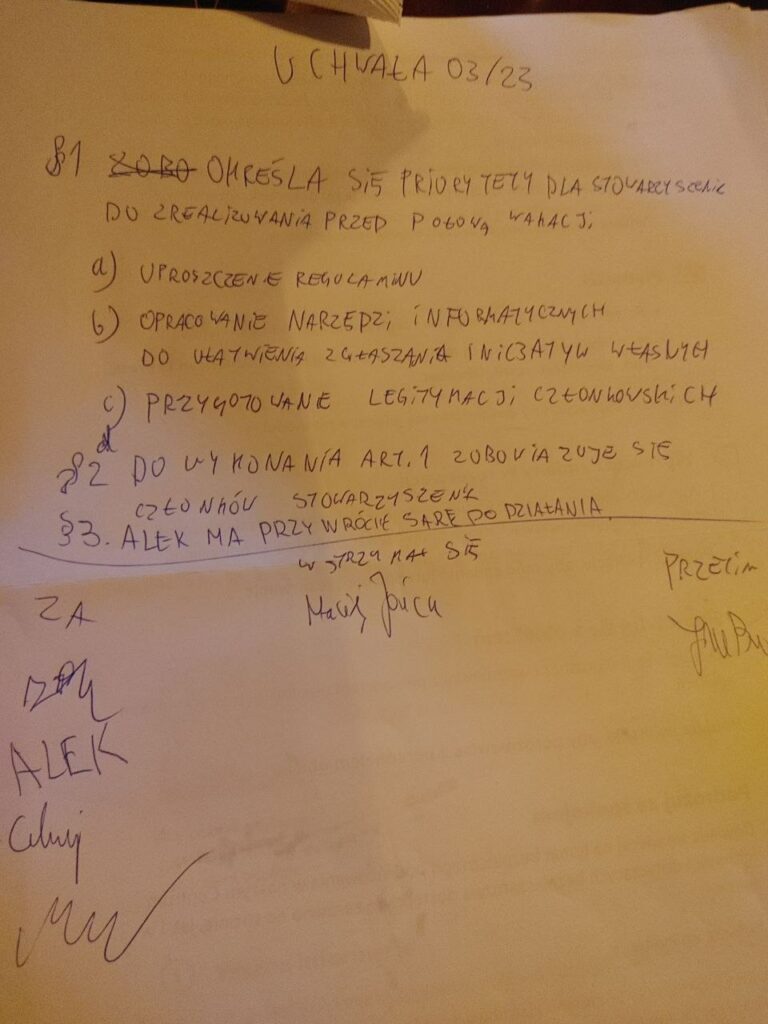 UCHWAŁA 03/23
§1 ZOBO OKREŚLA SIĘ PRIORYTETY DLA STOWARZYSZENIA
DO ZREALIZOWANIA PRZED POŁOWĄ WAKACJI
a) UPROSZCZENIE REGULAMINU
b) OPRACOWANIE NARZĘDZI INFORMATYCZNYCH
DO UŁATWIENIA ZGŁASZANIA INICJATYW WŁASNYCH
c) PRZYGOTOWANIE LEGITYMACJI CZŁONKOWSKICH
d
§2 DO WYKONANIA ART. 1 ZOBOWIAZUJE SIĘ
CZŁONKÓW STOWARZYSZENIA
§3. ALEK MA PRZYWRÓCIĆ SARĘ DO DZIAŁANIA
WSTRZYMAŁ SIĘ
ZA
PRZECIW
Maciej
ALEK